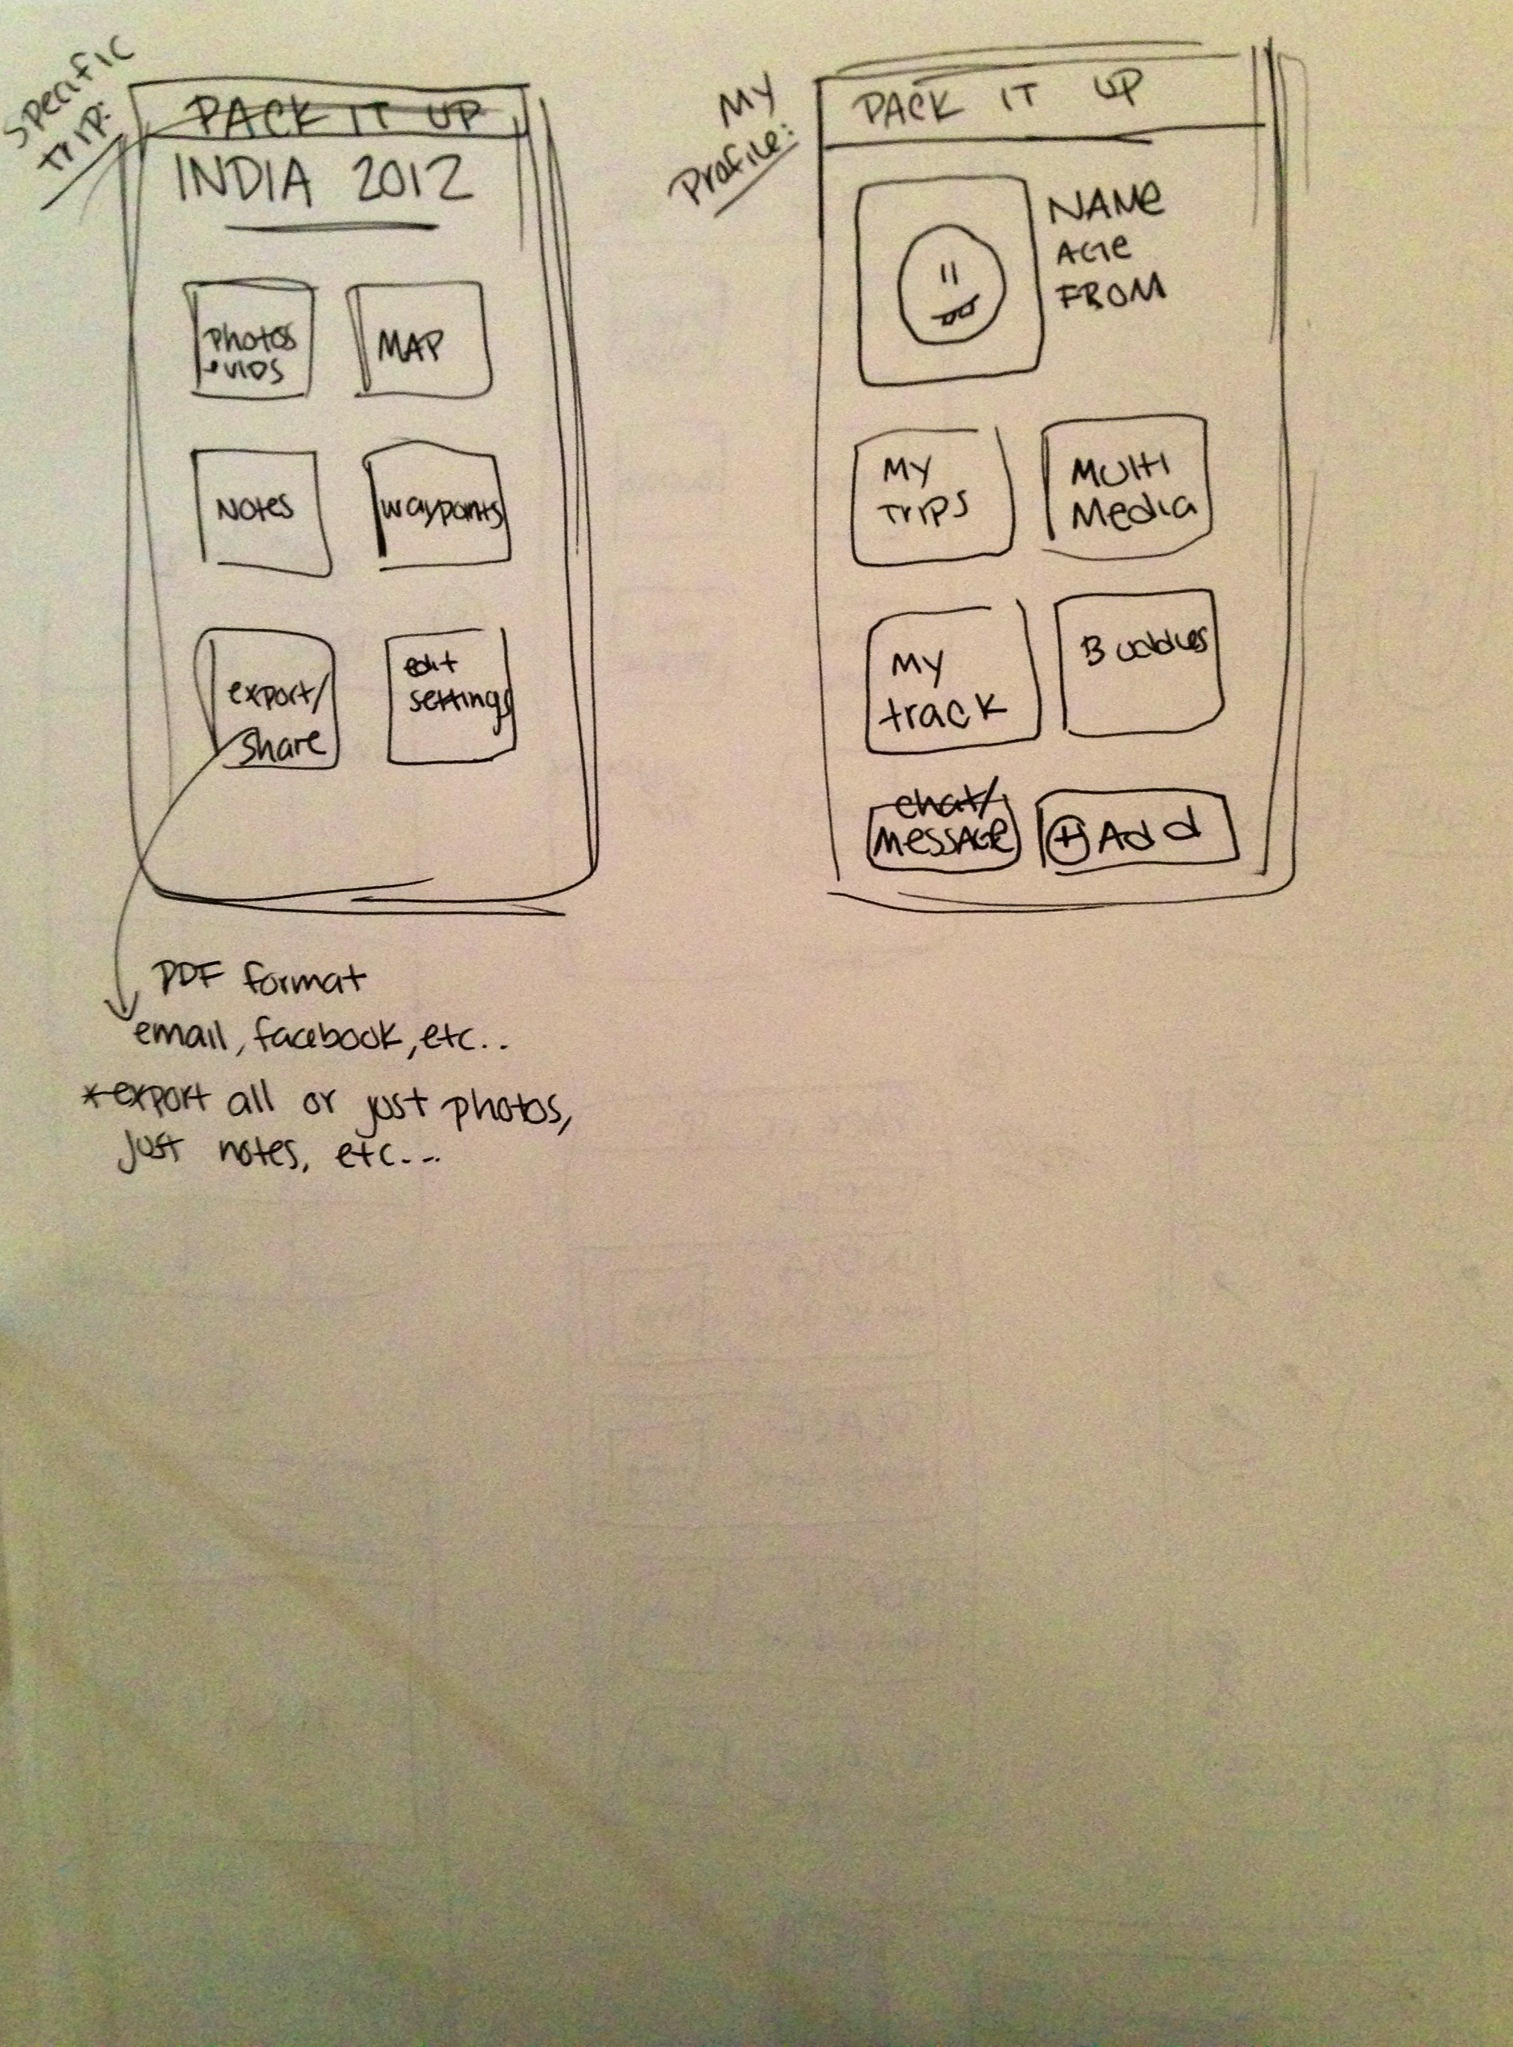 Specific
Trip:
PACK IT UP
INDIA 2012
Photos
+ vids
MAP
Notes
Waypoints
export/
share
edit
settings
PDF format
email, facebook, etc..
*export all or just photos,
just notes, etc...
My
Profile:
PACK IT UP
NAME
AGE
FROM
My
Trips
Multi
Media
My
track
Buddies
chat/
Message
+ Add